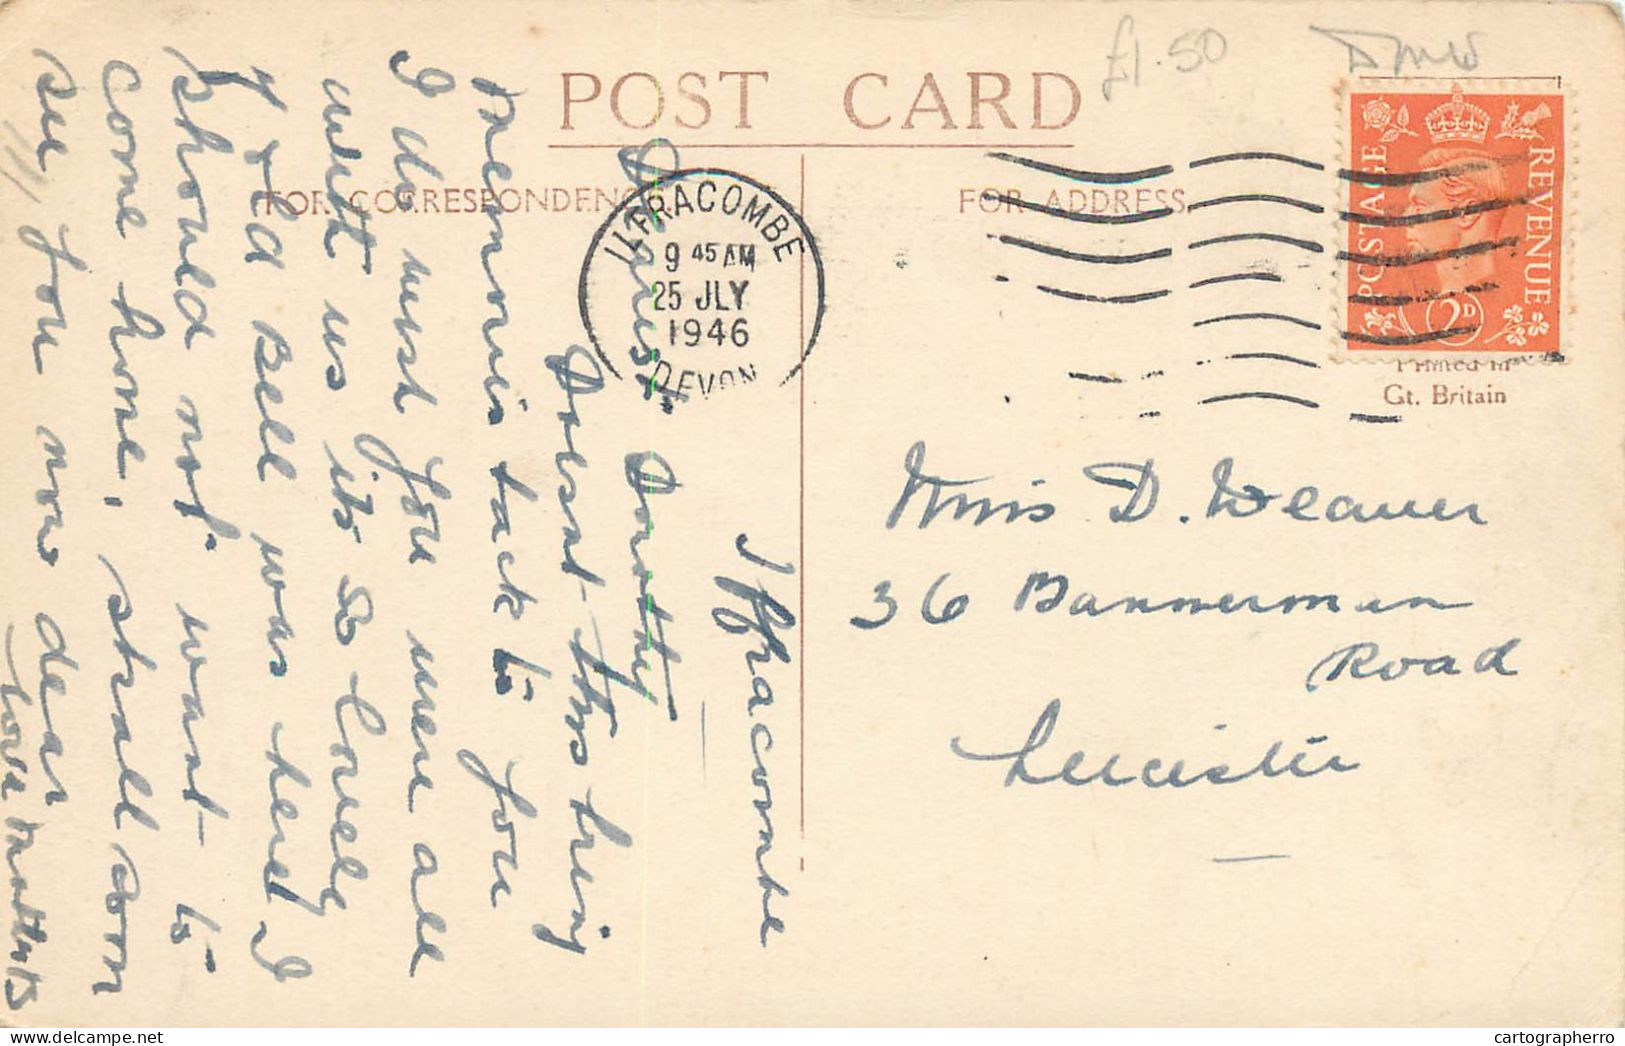 POST CARD
£1.50
FOR CORRESPONDENCE.
FOR ADDRESS.
ILFRACOMBE
9 45 AM
25 JLY
1946
DEVON
POSTAGE
REVENUE
2D
Printed in
Gt. Britain
Ilfracombe
Dearest Dorothy
Doesnt this bring
memories back to you
I do wish you were all
with us its so lovely
If Ted Bell was here I
should not want to
come home, shall soon
see you now dear
love Mother
Miss D. Weaver
36 Bannerman
Road
Leicester
cartographerro